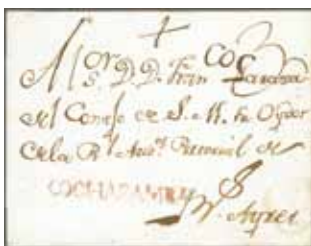 Al Sor. D. D. Franco
del Consejo de S. M. su Oydor
de la Rl. Auda. Pretorial de
COCHABAMBA
Bs. Ayres